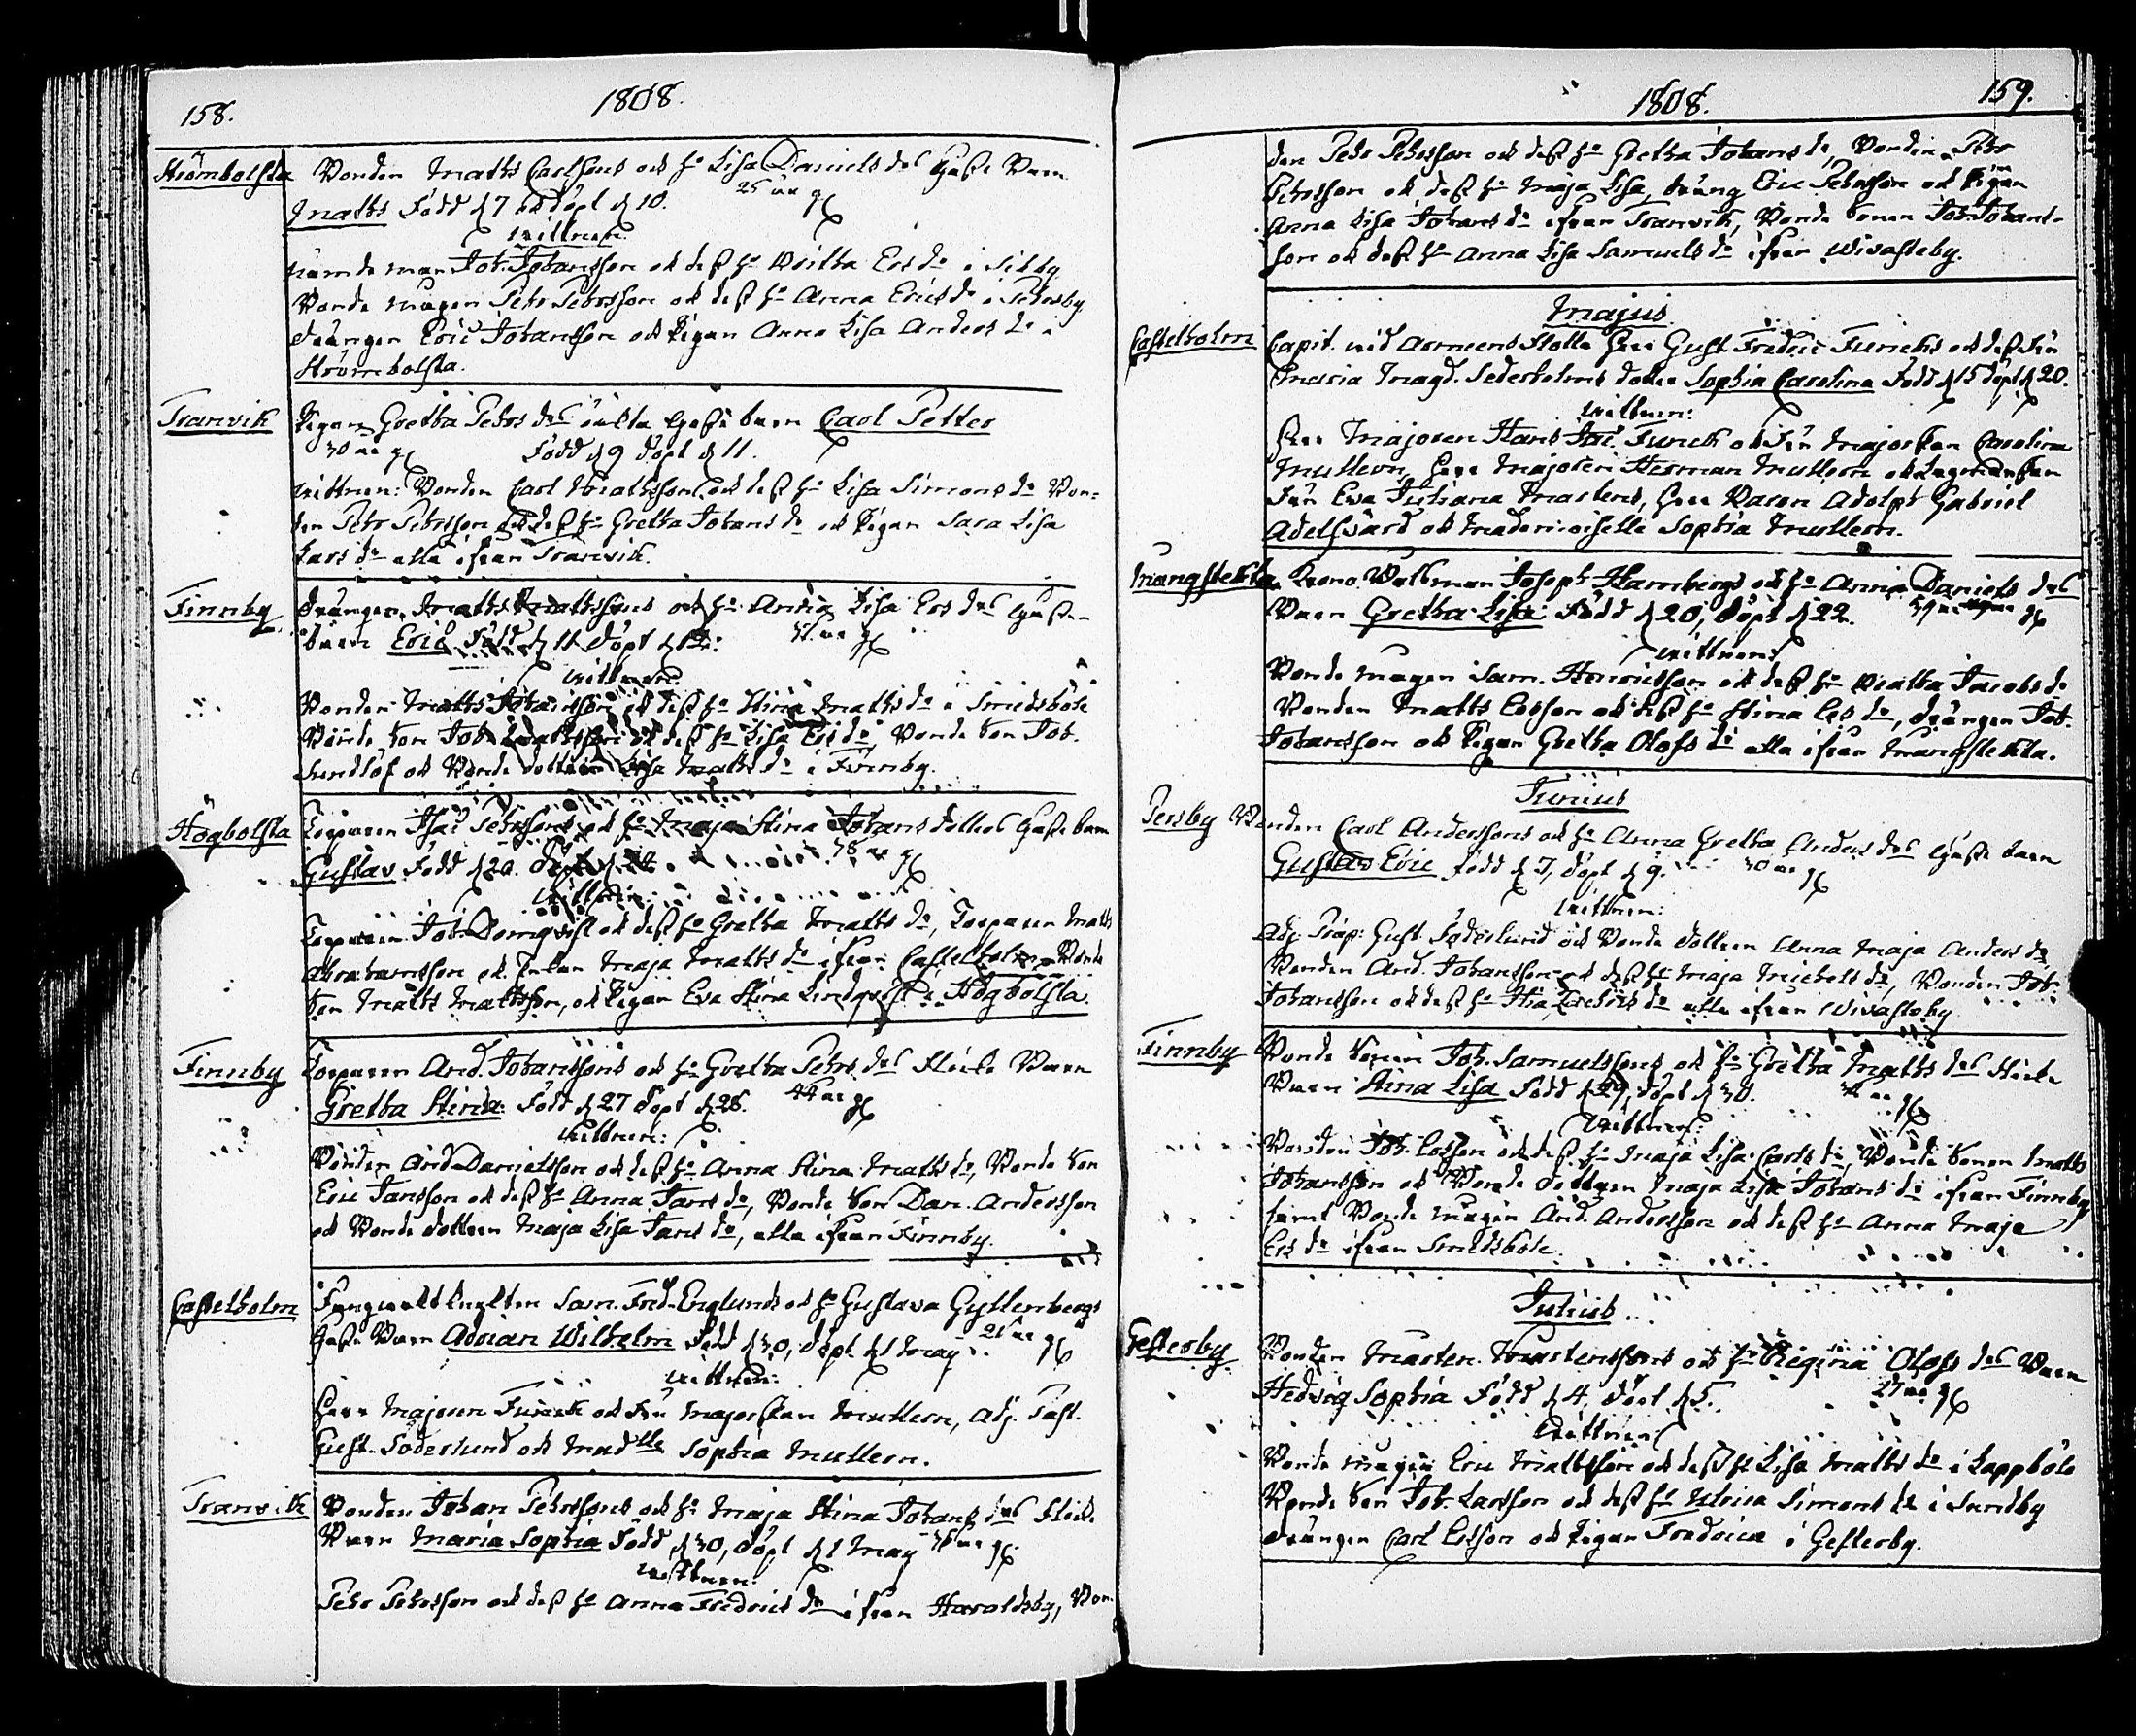 158.
1808.
Strömbolsta Bonden Matts Carlssons och h: Lisa Daniels drs Gåsse Barn
Matts Född d 7 och döpt d 10. 25 år g
Wittnen:
Nämdeman Joh. Johansson och dess h: Beitha Ers dr i Sibby
Bonde Mågen Pehr Pehrsson och dess h: Anna Erics dr i Pehrsby
Drängen Eric Johansson och Pigan Anna Lisa Anders dr i
Strömbolsta.
Tranvik Pigan Gretha Pehrs drs oäkta Gåsse barn Carl Petter
30 år g Född d 9 döpt d 11.
Wittnen: Bonden Carl Mathsson och dess h: Lisa Simons dr Bon-
den Pehr Pehrsson och dess h: Gretha Johans dr och Pigan Sara Lisa
Lars dr alla ifrån Tranvik.
Finnby Drängen Matts Mattssons och h: Anna Lisa Ers drs Gåsse-
barn Eric Född d 11 Döpt d 12: år g
Wittnen:
Bonden Matts Johansson och dess h: Stina Matts dr i Smedsböle
Bonde Son Joh. Mattsson och dess h: Lisa Ers dr Bonde Son Joh.
Sundlöf och Bonde dottren Lisa Matts dr i Finnby.
Högbolsta Torparen Isac Pehrssons och h: Maja Stina Johans dotters Gåsse barn
Gustav Född d 20. Döpt d år g
Wittnen:
Torparen Joh. och dess h: Gretha Matts dr, Torparen Matts
Abrahamsson och Enkan Maja Matts dr ifrån Castelholm, Bonde
Son Matts Mattsson, och Pigan Eva Stina Lindqvist i Högbolsta.
Finnby Torparen And. Johanssons och h: Gretha Pehrs drs Flicke Barn
Gretha Stina: Född d 27 Döpt d 28. 44 år g
Wittnen:
Bonden And Danielsson och dess h: Anna Stina Matts dr, Bonde Son
Eric Jansson och dess h: Anna Jans dr, Bonde Son Dan. Andersson
och Bonde dottren Maja Lisa Jans dr, alla ifrån Finnby.
Castelholm Sam. Fred. Englunds och h: Gustava Gyllenbergs
Gåsse Barn Adrian Wilhelm Född d 30, döpt d 1 May år g
Wittnen:
Herr Majoren Furuck och Fru Majorskan Mullern, Adj. Past.
Gust. Söderlund och Madlle Sophia Mullern.
Tranvik Bonden Johan Pehrssons och h: Maja Stina Johans drs Flicke
Barn Maria Sophia Född d 30, döpt d 1 May 36 år g
Wittnen:
Pehr Pehrsson och dess h: Anna Fredrics dr ifrån Haroldsby, Bon-
1808.
159.
den Pehr Pehrsson och dess h: Gretha Johans dr, Bonden Pehr
Pehrsson och dess h: Maja Lisa, dräng Eric Pehrsson och Pigan
Anna Lisa Johans dr ifrån Tranvik, Bonde Sonen Joh. Johans-
son och dess h: Anna Lisa Samuels dr ifrån Wivasteby.
Majus
Castelholm Capit. vid Armeens Flotta Herr Gust. Fredric Furucks och dess Fru
Maria Magd. Sederholms dotter Sophia Carolina Född d 15 döpt d 20.
Wittnen:
Herr Majoren Hans Jac. Furuck och Fru Majorskan Carolina
Mullern, Herr Majoren Herman Mullern och Lagmanskan
Fru Eva Juliana Mastens, Herr Baron Adolph Gabriel
Adelsvärd och Mademoiselle Sophia Mullern.
Mångstekta Krono Båtsman Joseph Hambergs och h: Anna Daniels drs
Barn Gretha Lisa Född d 20, döpt d 22. 39 år g
Wittnen:
Bonde mågen Sam. Henricsson och dess h: Beatha Jacobs dr
Bonden Matts Ersson och dess h: Stina Ers dr, Drängen Joh.
Johansson och Pigan Gretha Olofs dr alla ifrån Mångstekta.
Junius
Persby Bonden Carl Anderssons och h: Anna Gretha Anders drs Gåsse barn
Gustav Eric Född d 7, döpt d 9. 30 år g
Wittnen:
Adj. Past: Gust. Söderlund och Bonde dottren Anna Maja Anders dr
Bonden And. Johansson och dess h: Maja Michels dr, Bonden Joh.
Johansson och dess h: Fredrics dr alla ifrån Wivasteby
Finnby Bonde Sonen Joh. Samuelssons och h: Gretha Matts drs Flicke
Barn Stina Lisa Född d 29, döpt d 30. år g
Wittnen:
Bonden Joh. Ersson och dess h: Maja Lisa Carls dr, Bonde Sonen Matts
Johansson och Bonde dottren Maja Lisa Johans dr ifrån Finnby
samt Bonde mågen And. Andersson och dess h: Anna Maja
Ers dr ifrån Smedsböle.
Julius
Gesterby Bonden Mårten Mårtenssons och h: Regina Olofs drs Barn
Hedvig Sophia Född d 4. döpt d 5. 27 år g
Wittnen:
Bonde mågen Eric Mattsson och dess h: Lisa Matts dr i Lappböle
Bonde Son Joh. Larsson och dess h: Ulrica Simons dr i Sundby
drängen Carl Ersson och Pigan Fredrica i Gesterby.